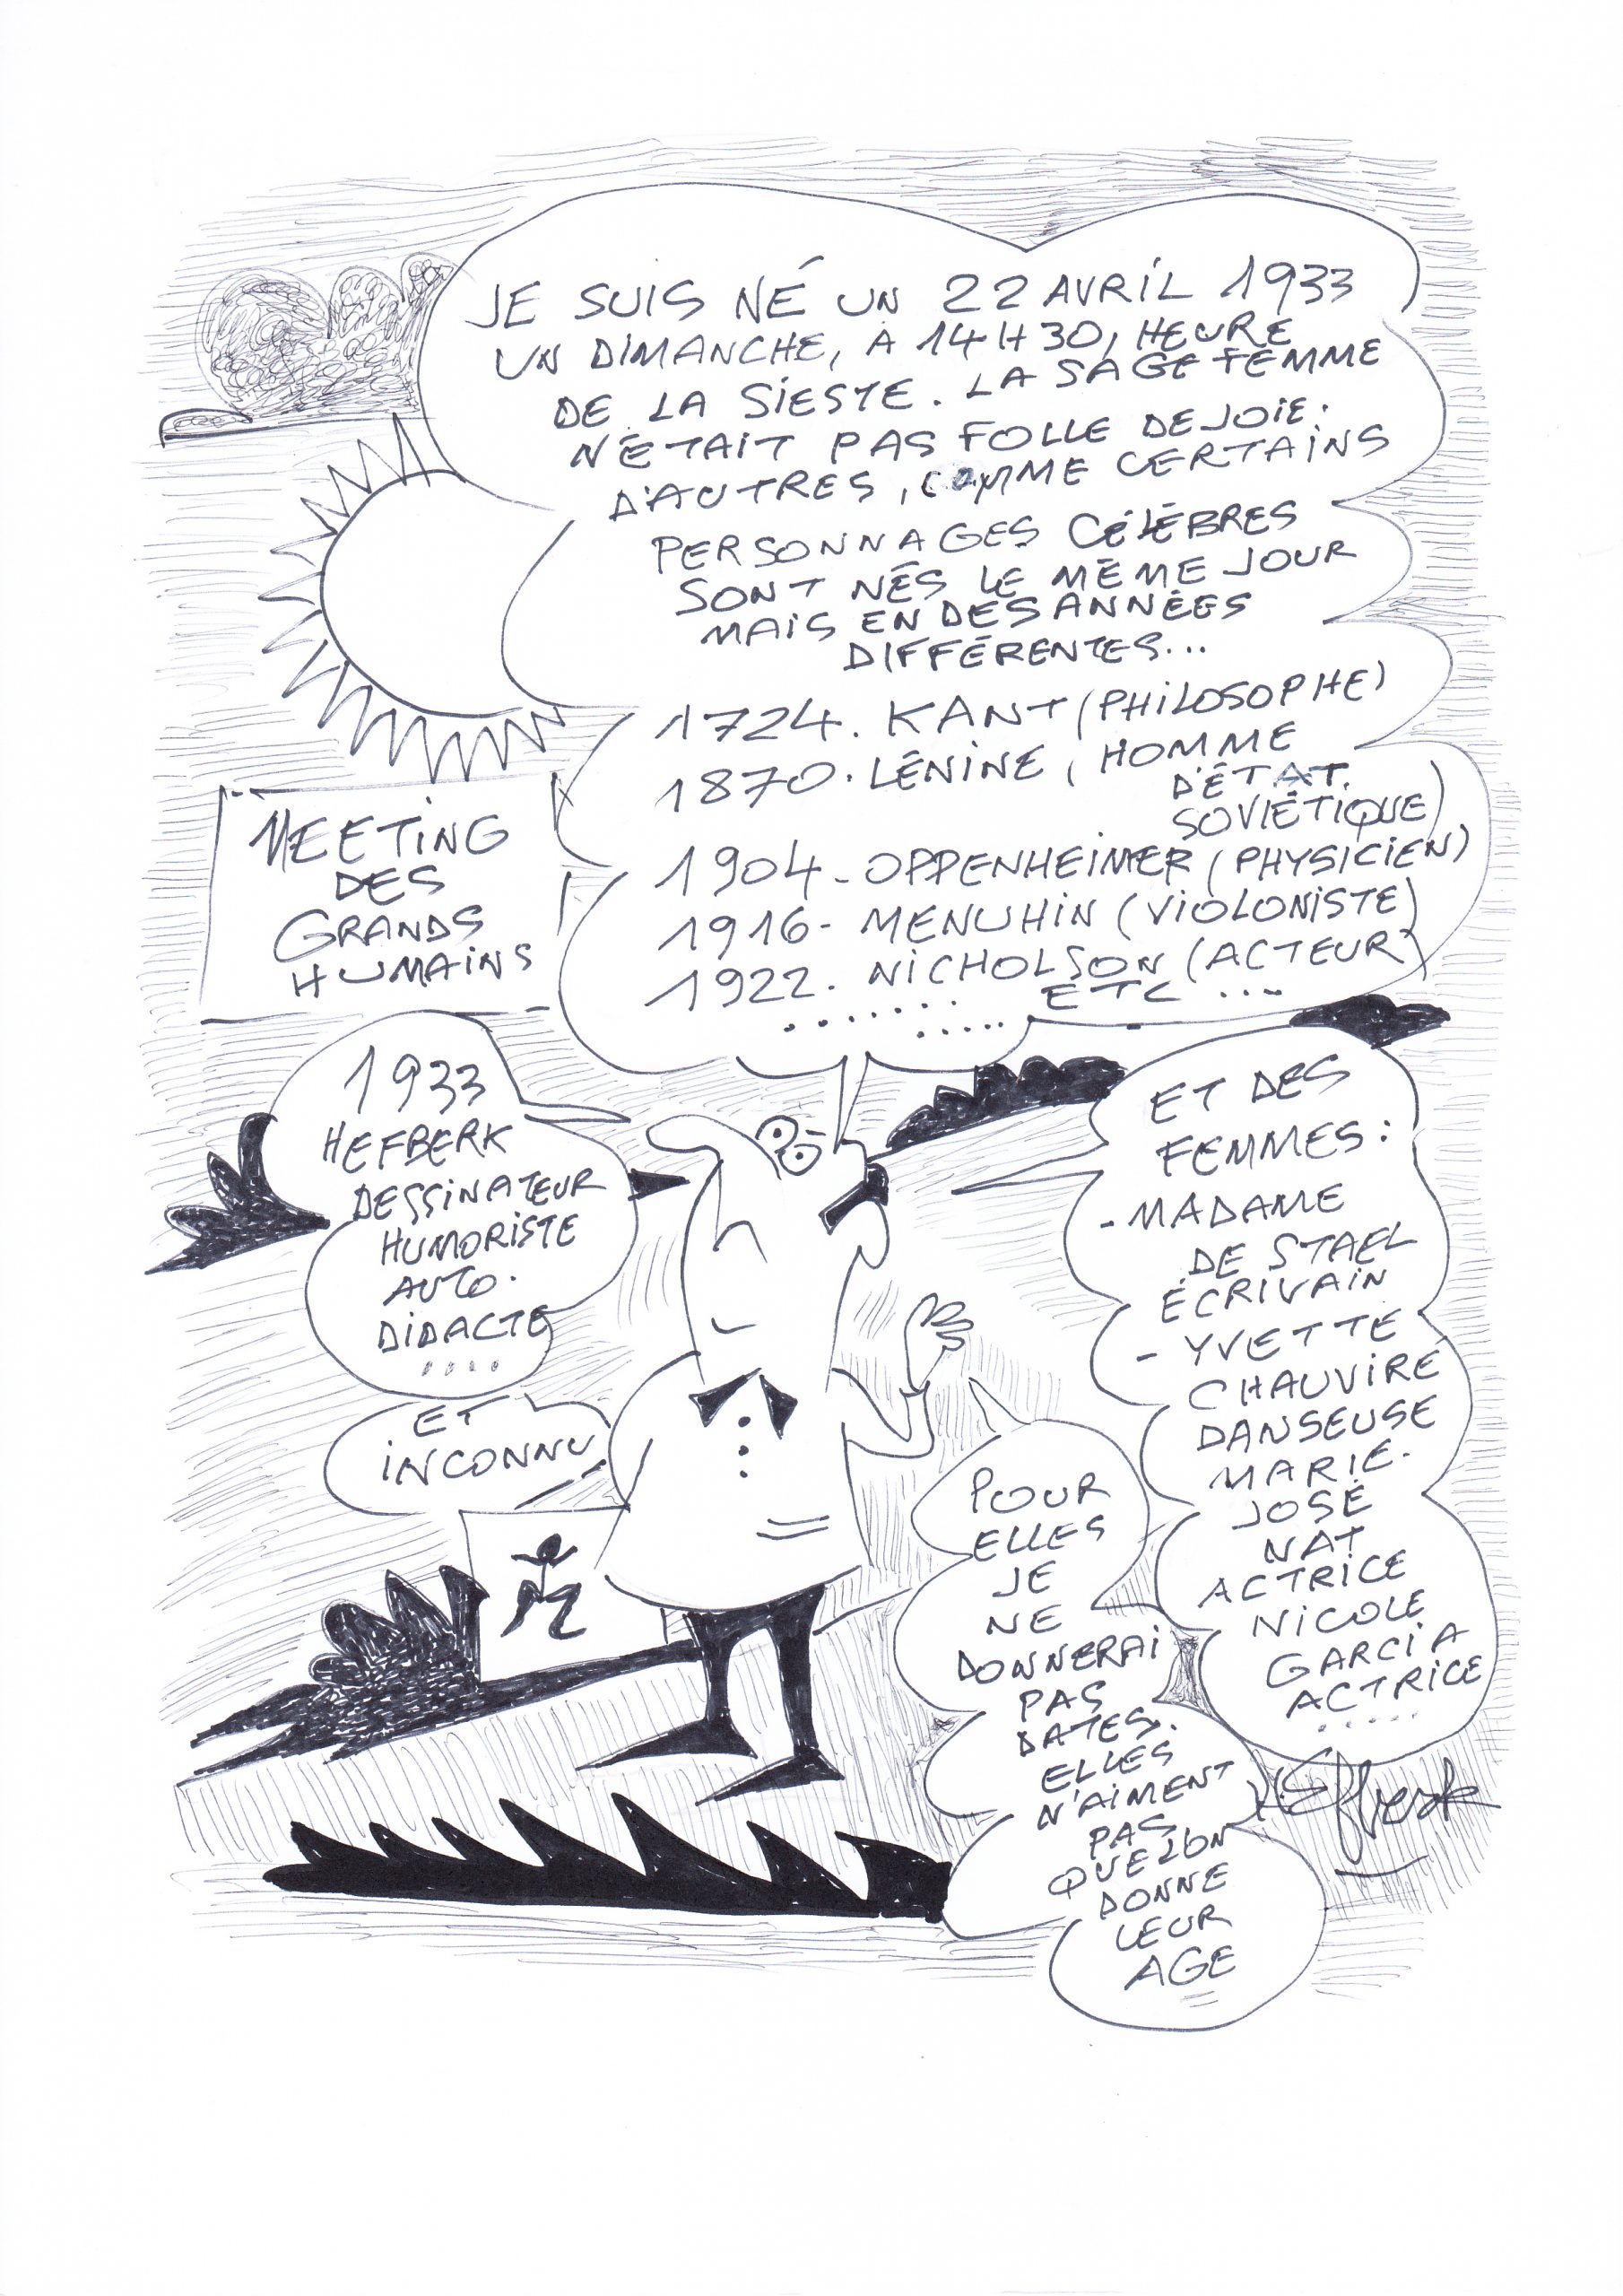 JE SUIS NÉ UN 22 AVRIL 1933
UN DIMANCHE, A 14H30, HEURE
DE LA SIESTE. LA SAGE FEMME
N'ÉTAIT PAS FOLLE DE JOIE.
D'AUTRES, COMME CERTAINS
PERSONNAGES CÉLÈBRES
SONT NÉS LE MÊME JOUR
MAIS EN DES ANNÉES
DIFFÉRENTES...
1724. KANT (PHILOSOPHE)
1870. LÉNINE, HOMME
D'ÉTAT.
SOVIÉTIQUE)
1904 - OPPENHEIMER (PHYSICIEN)
1916 - MENUHIN (VIOLONISTE)
1922. NICHOLSON (ACTEUR)
...... ETC ...
.....
MEETING
DES
GRANDS
HUMAINS
1933
HEFBERK
DESSINATEUR
HUMORISTE
AUTO.
DIDACTE
....
ET
INCONNU
ET DES
FEMMES :
- MADAME
DE STAEL
ÉCRIVAIN
- YVETTE
CHAUVIRÉ
DANSEUSE
MARIE.
JOSÉ
NAT
ACTRICE
NICOLE
GARCIA
ACTRICE
.....
POUR
ELLES
JE
NE
DONNERAI
PAS
DATES.
ELLES
N'AIMENT
PAS
QUE L'ON
DONNE
LEUR
AGE
HEfberk